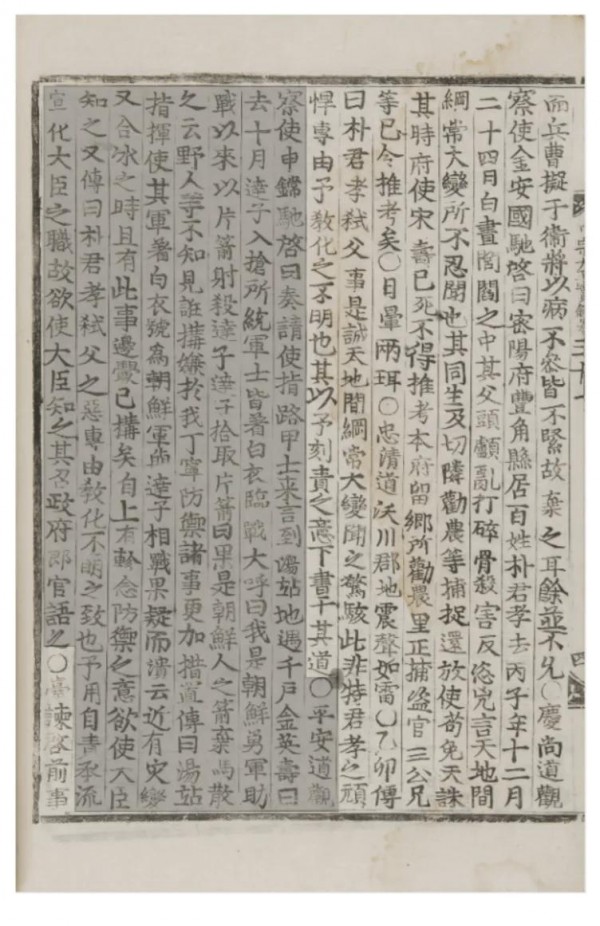 而兵曹擬于衛將以病不容皆不緊故棄之耳餘並不允○慶尚道觀
察使金安國馳啓曰密陽府豐角縣居百姓朴君孝去丙子年十二月
二十四日白晝閭閻之中其父頭顱亂打碎骨殺害反恣兇言天地間
綱常大變所不忍聞也其同生及切隣勸農等捕捉還放使苟免天誅
其時府使宋壽已死不得推考本府留鄕所勸農里正捕盜官三公兄
等已令推考矣○日暈兩珥○忠淸道沃川郡地震聲如雷○乙卯傳
曰朴君孝弑父事是誠天地間綱常大變聞之驚駭此非特君孝之頑
悍專由予敎化之不明也其以予刻責之意下書于其道○平安道觀
察使申鏛馳啓曰奏請使指路甲士来言到湯站地遇千戶金英壽曰
去十月達子入搶所統軍士皆著白衣臨戰大呼曰我是朝鮮勇軍助
戰以來以片箭射殺達子達子拾取片箭曰果是朝鮮人之箭棄馬散
之云野人等不知見誑搆嫌於我丁寧防禦諸事更加措置傳曰湯站
指揮使其軍著白衣號爲朝鮮軍與達子相戰果疑而潰云近有災變
又合冰之時且有此事邊釁已搆矣自上有軫念防禦之意欲使大臣
知之又傳曰朴君孝弑父之惡專由敎化不明之致也予用自責承流
宣化大臣之職故欲使大臣知之其召政府郞官語之○臺諫啓前事
四